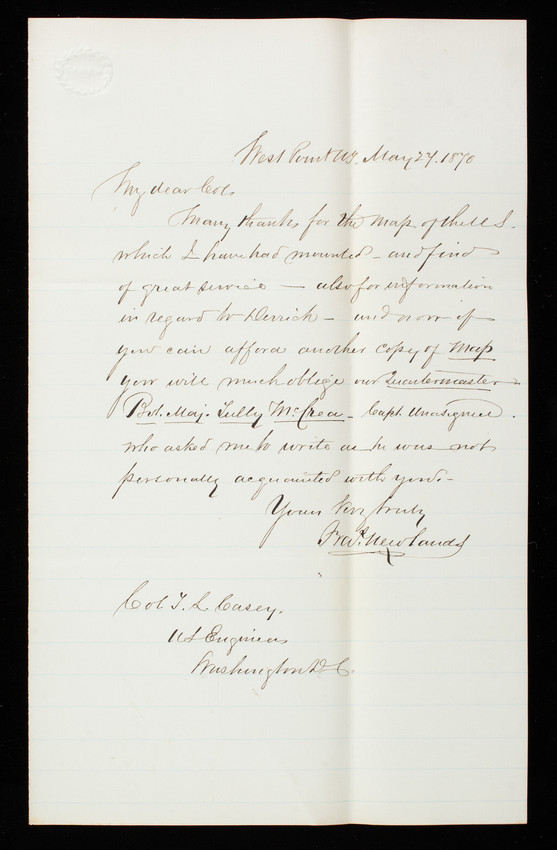 West Point NY. May 27. 1870
My dear Col.
Many thanks for the map of the U S.
which I have had mounted - and find
of great service - also for information
in regard to Derrick - and now if
you can afford another copy of Map
you will much oblige our Quartermaster
Bvt. Maj. Tully McCrea - Capt. Unassigned.
who asked me to write as he was not
personally acquainted with you. -
Yours Very truly
Newlands
Col. T. L. Casey.
US Engineers
Washington D.C.